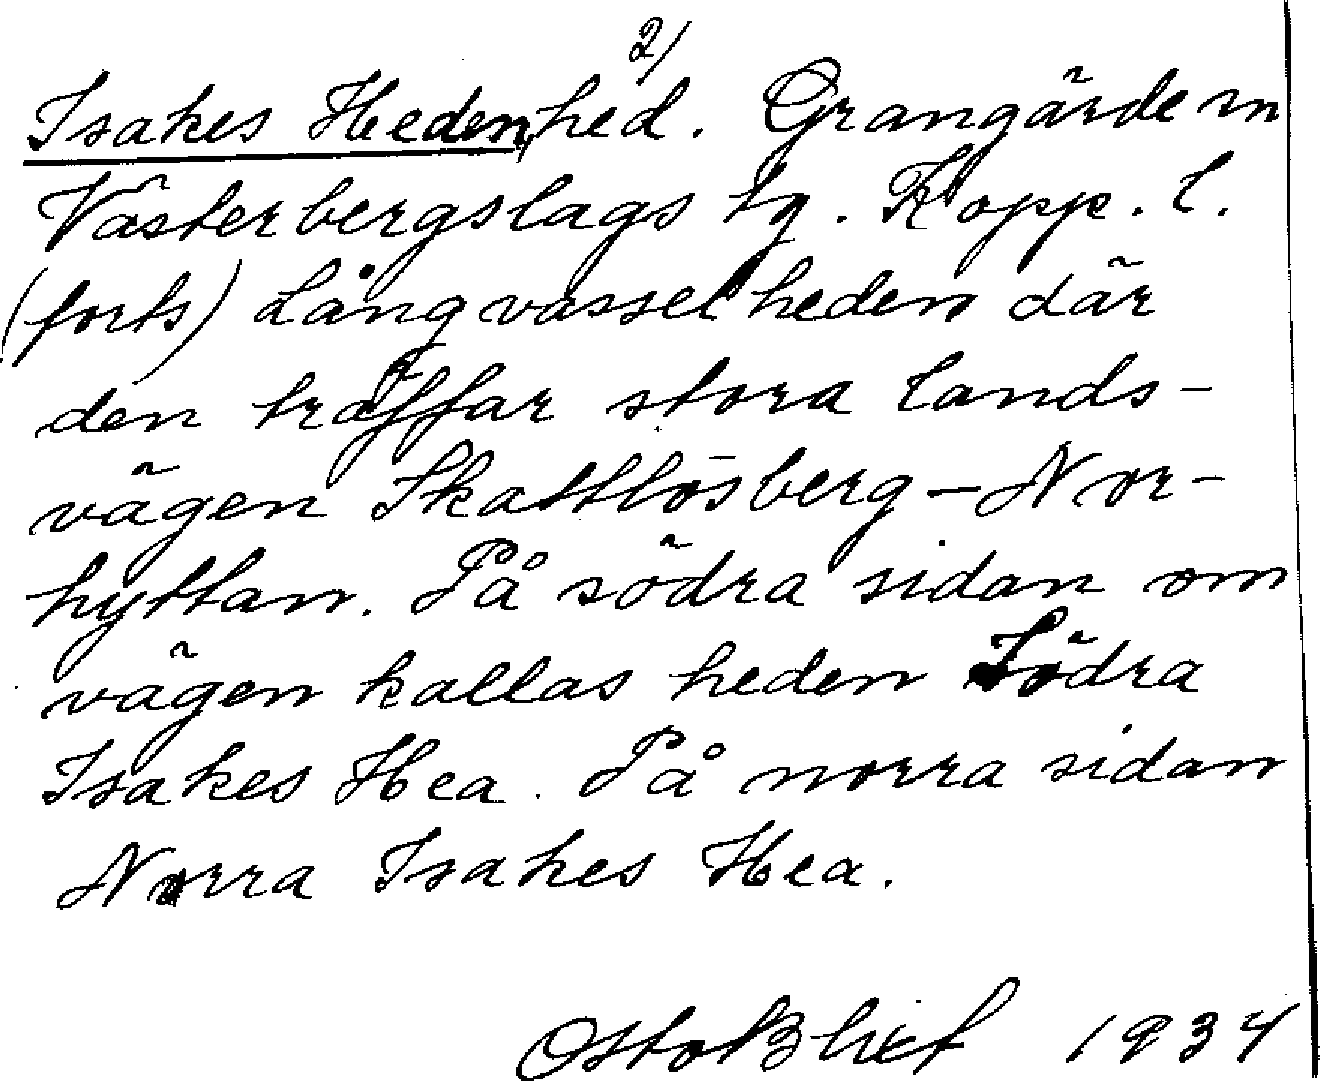 2/
Isakes Heden, hed. Grangärde sn
Västerbergslags tg. Kopp. l.
(forts) Långvasselheden där
den träffar stora lands-
vägen Skattlösberg - Nor-
hyttan. På södra sidan om
vägen kallas heden Södra
Isakes Hea. På norra sidan
Norra Isakes Hea.
Otto Blixt 1934